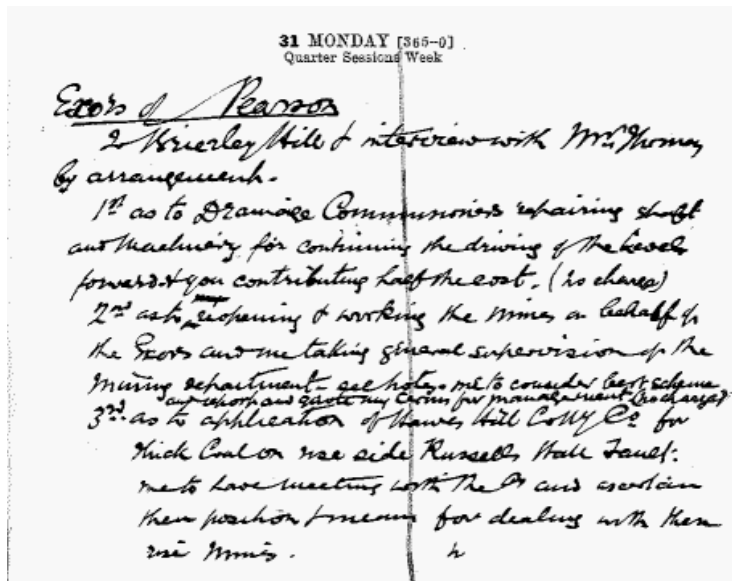 31 MONDAY [365-0]
Quarter Sessions Week
Exors of Pearson
To Brierley Hill & interview with Mrs Thomas
by arrangement.
1st as to Drainage Commissioners repairing shaft
and Machinery for continuing the driving of the Levels
forward & you contributing half the cost. (no charge)
2nd as to reopening & working the Mines on behalf of
the Exors and me taking general supervision of the
Mining department - see notes - me to consider best scheme
and report and quote my terms for management (no charge)
3rd as to application of Hawes Hill Colly Co for
Thick Coal on rise side Russells Hall Fault:
me to have meeting with the and ascertain
their position & means for dealing with these
rise mines.